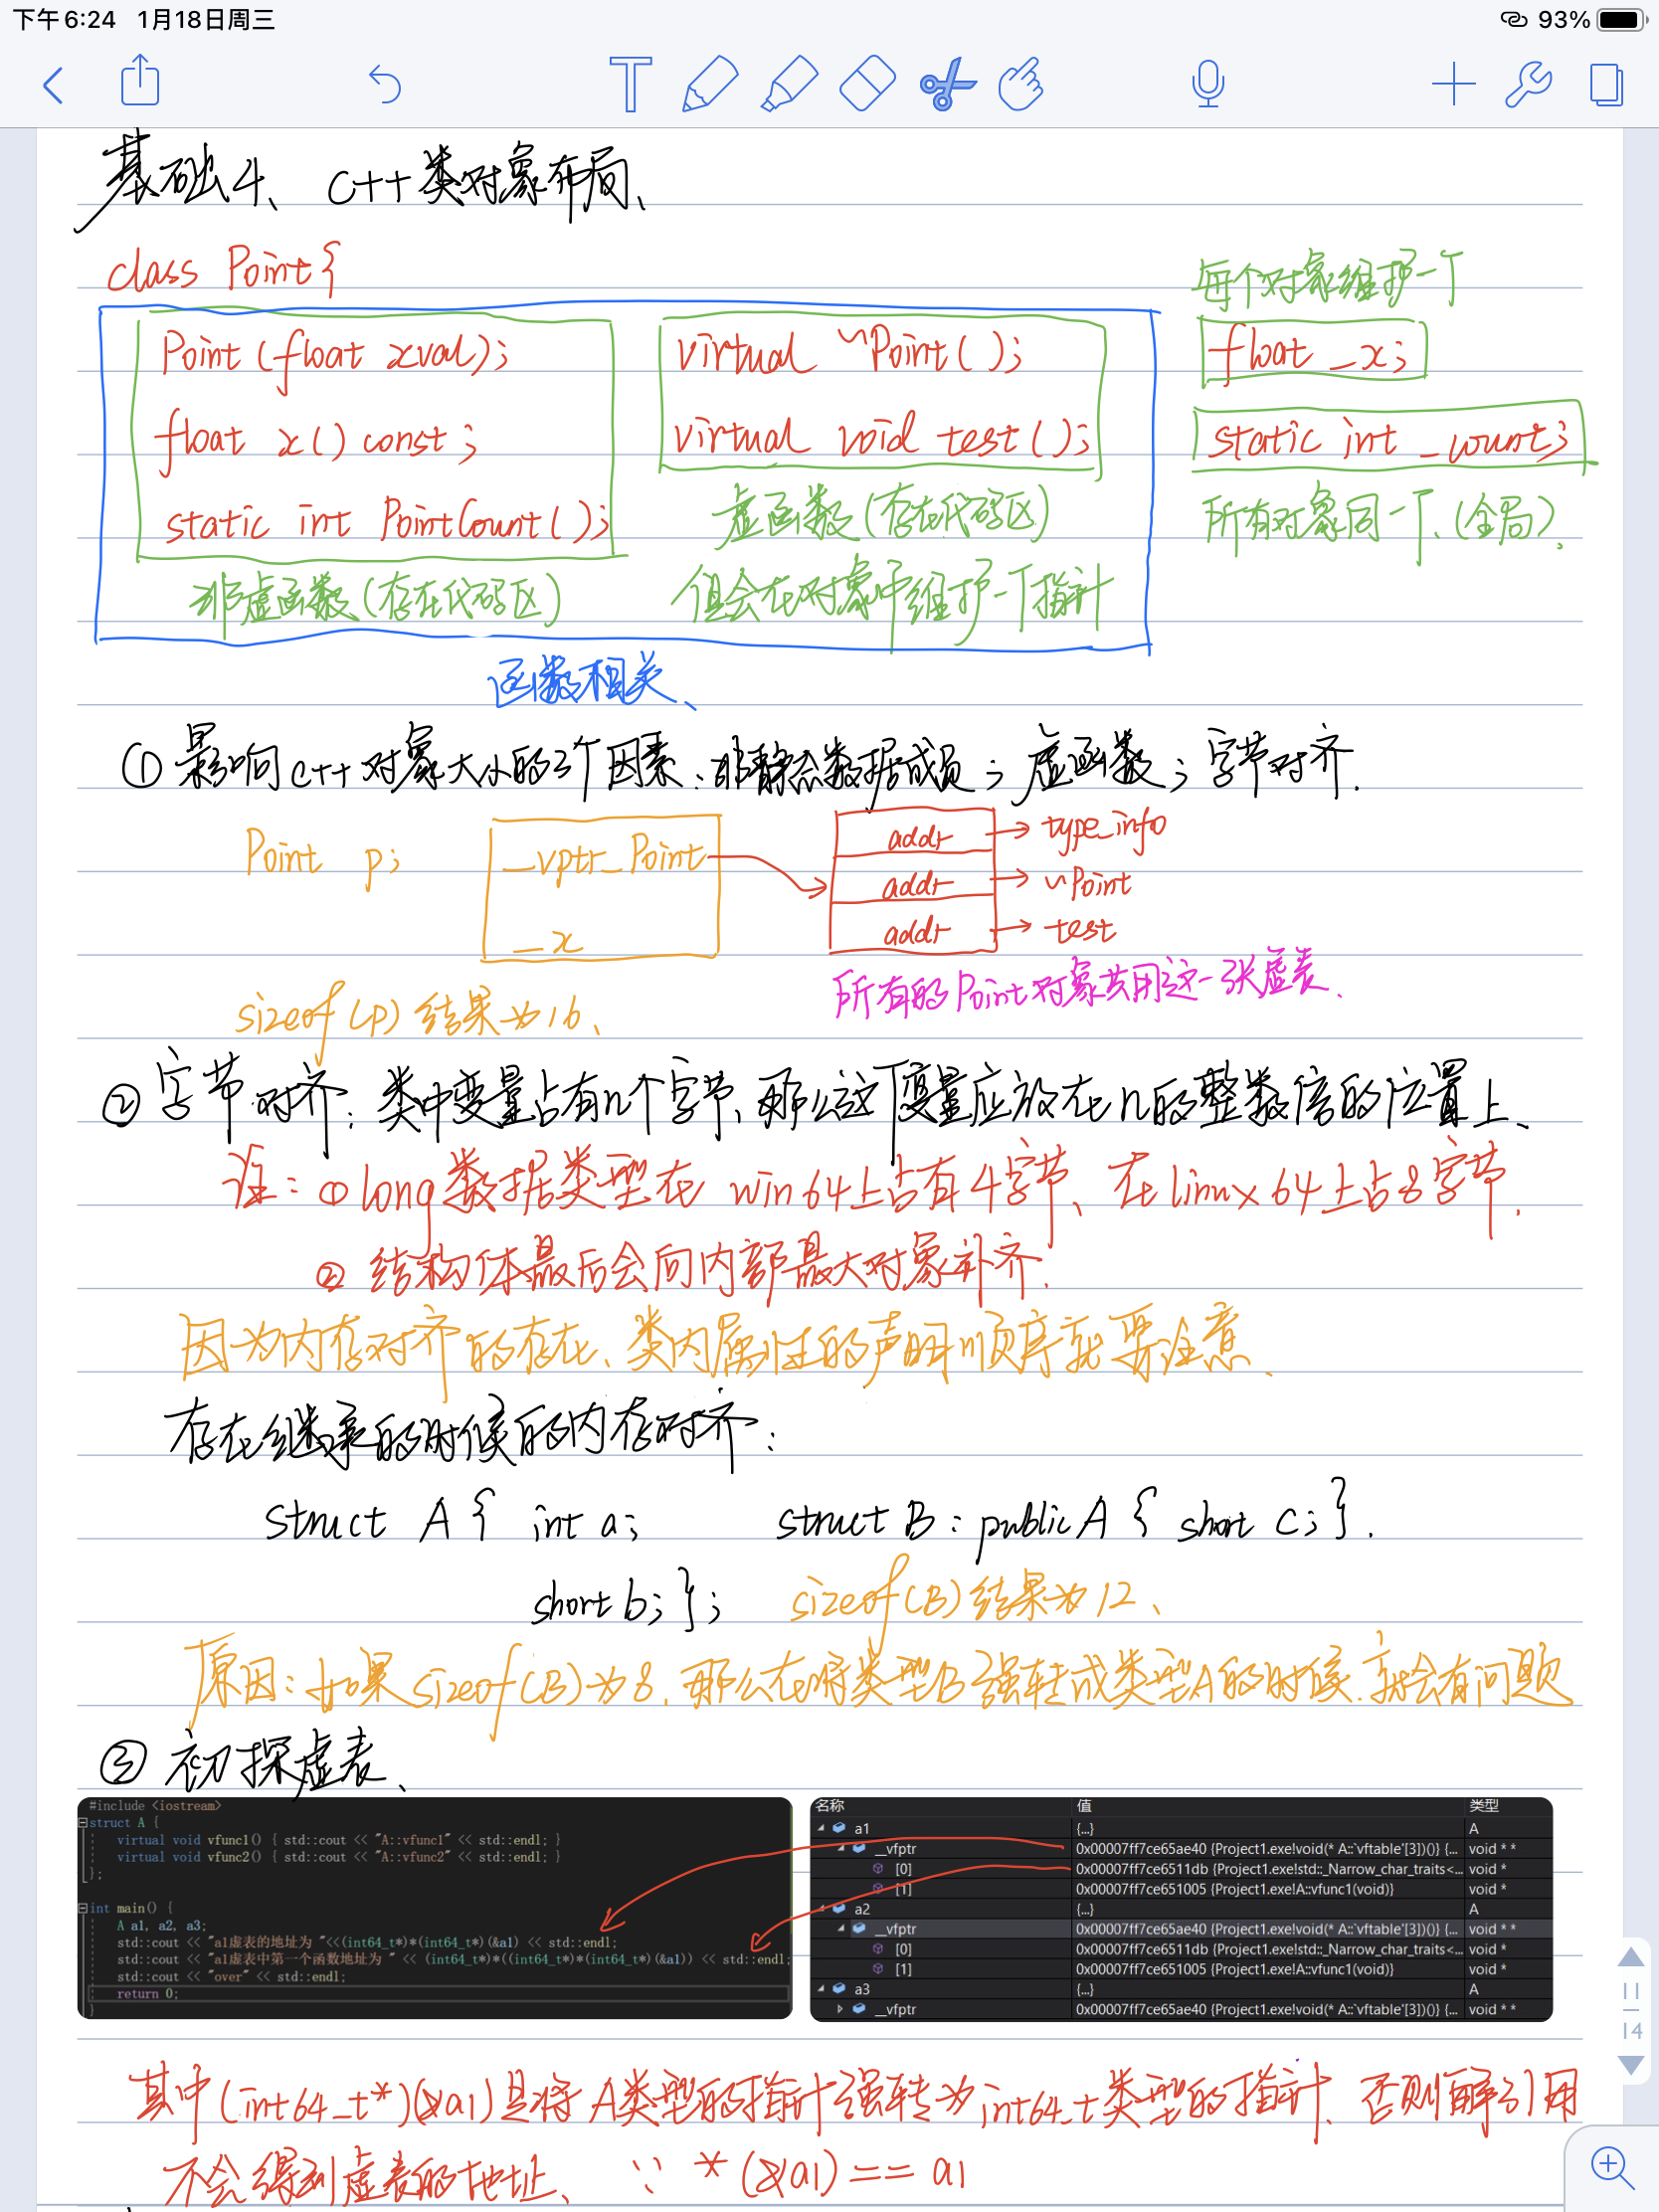 下午6:24 1月18日周三
93%
基础4、C++类对象布局、
class Point{
每个对象维护一个
Point (float xval);
virtual ~Point();
float _x;
float x() const;
virtual void test();
static int _count;
static int PointCount();
虚函数(存在代码区)
所有对象同一个、(全局)、
非虚函数(存在代码区)
但会在对象中维护一个指针
函数相关、
① 影响C++对象大小的3个因素：非静态数据成员；虚函数；字节对齐.
Point p;
_vptr_Point
addr → type_info
addr → ~Point
_x
addr → test
所有的Point对象共用这一张虚表、
sizeof(p) 结果为16、
② 字节对齐：类中变量占有n个字节、那么这个变量应放在n的整数倍的位置上、
注：① long数据类型在win64上占有4字节、在linux64上占8字节.
② 结构体最后会向内部最大对象补齐.
因为内存对齐的存在、类内属性的声明顺序就要注意、
存在继承的时候的内存对齐：
struct A { int a;
struct B: public A { short c; }.
short b; };
sizeof(B)结果为12、
原因：如果sizeof(B)为8. 那么在将类型B强转成类型A的时候.就会有问题
③ 初探虚表、
#include <iostream>
struct A {
virtual void vfunc1() { std::cout << "A::vfunc1" << std::endl; }
virtual void vfunc2() { std::cout << "A::vfunc2" << std::endl; }
};
int main() {
A a1, a2, a3;
std::cout << "a1虚表的地址为 "<<(int64_t*)*(int64_t*)(&a1) << std::endl;
std::cout << "a1虚表中第一个函数地址为 " << (int64_t*)*((int64_t*)*(int64_t*)(&a1)) << std::endl;
std::cout << "over" << std::endl;
return 0;
}
名称 值 类型
a1 {...} A
__vfptr 0x00007ff7ce65ae40 {Project1.exe!void(* A::`vftable'[3])()} {... void * *
[0] 0x00007ff7ce6511db {Project1.exe!std::_Narrow_char_traits<... void *
[1] 0x00007ff7ce651005 {Project1.exe!A::vfunc1(void)} void *
a2 {...} A
__vfptr 0x00007ff7ce65ae40 {Project1.exe!void(* A::`vftable'[3])()} {... void * *
[0] 0x00007ff7ce6511db {Project1.exe!std::_Narrow_char_traits<... void *
[1] 0x00007ff7ce651005 {Project1.exe!A::vfunc1(void)} void *
a3 {...} A
__vfptr 0x00007ff7ce65ae40 {Project1.exe!void(* A::`vftable'[3])()} {... void * *
11
14
其中(int64_t*)(&a1)是将A类型的指针强转为int64_t类型的指针、否则解引用
不会得到虚表的地址、∵ *(&a1) == a1